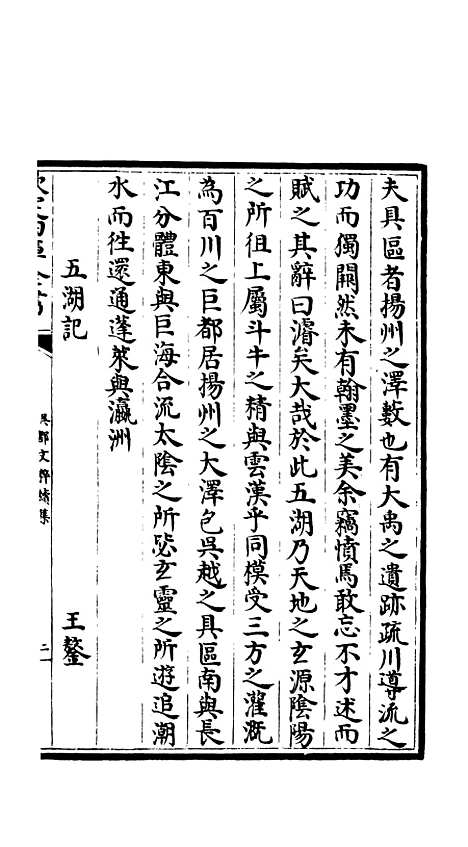 夫具區者揚州之澤藪也有大禹之遺跡疏川導流之
功而獨闕然未有翰墨之美余竊憤焉敢忘不才述而
賦之其辭曰濬矣大哉於此五湖乃天地之玄源陰陽
之所徂上屬斗牛之精與雲漢乎同模受三方之灌溉
為百川之巨都居揚州之大澤包吳越之具區南與長
江分體東與巨海合流太陰之所毖玄靈之所遊追潮
水而往還通蓬萊與瀛洲
五湖記 王鏊
吳都文粹續集 二